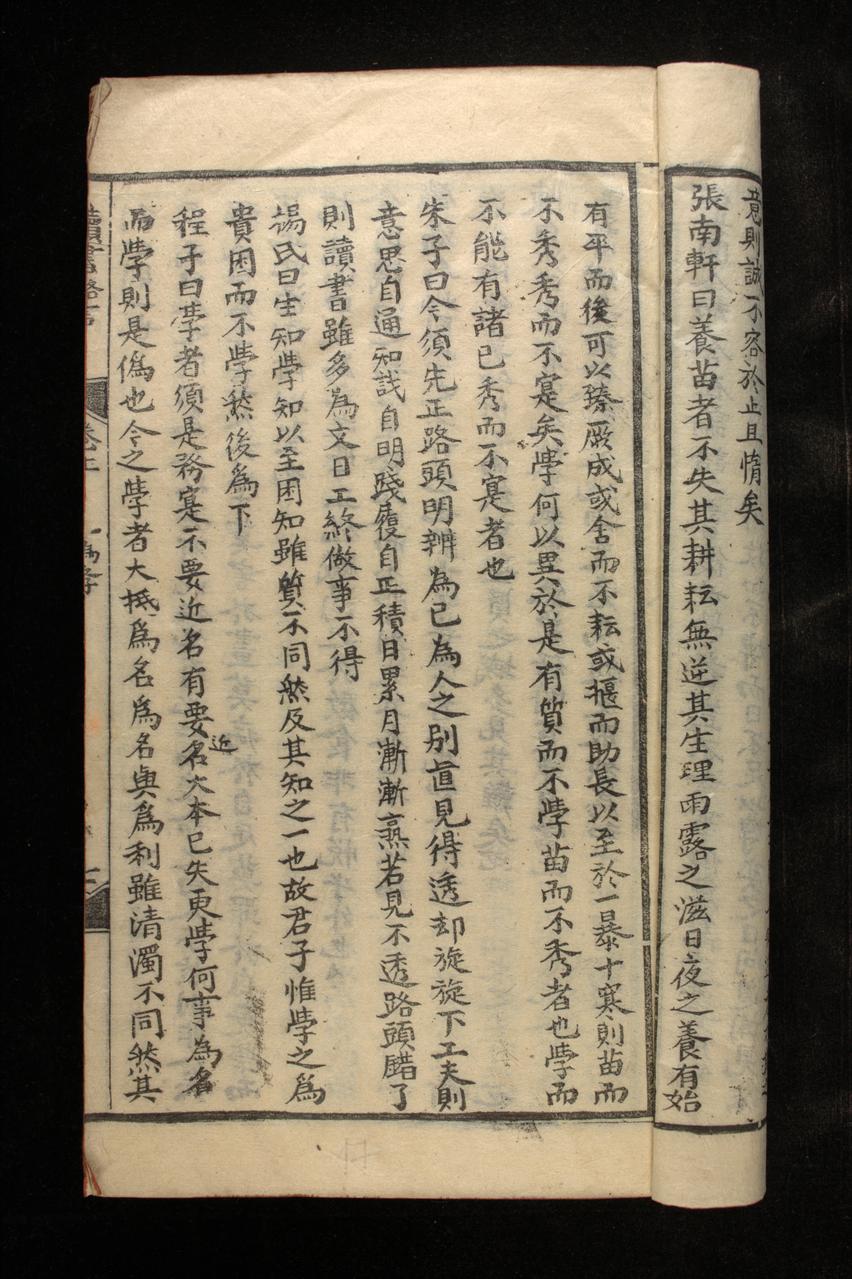 意則誠不容於止且惰矣
張南軒曰養苗者不失其耕耘無逆其生理雨露之滋日夜之養有始
有平而後可以臻厥成或舍而不耘或揠而助長以至於一暴十寒則苗而
不秀秀而不寔矣學何以異於是有質而不學苗而不秀者也學而
不能有諸己秀而不寔者也
朱子曰今須先正路頭明辨為己為人之别直見得透却旋旋下工夫則
意思自通知識自明踐履自正積日累月漸漸熟若見不透路頭錯了
則讀書雖多為文日工終做事不得
楊氏曰生知學知以至困知雖質不同然及其知之一也故君子惟學之為
貴困而不學然後為下
程子曰學者須是務寔不要近名有要近名大本已失更學何事為名
而學則是偽也今之學者大抵為名為名與為利雖清濁不同然其
讀書略言
卷上
為學